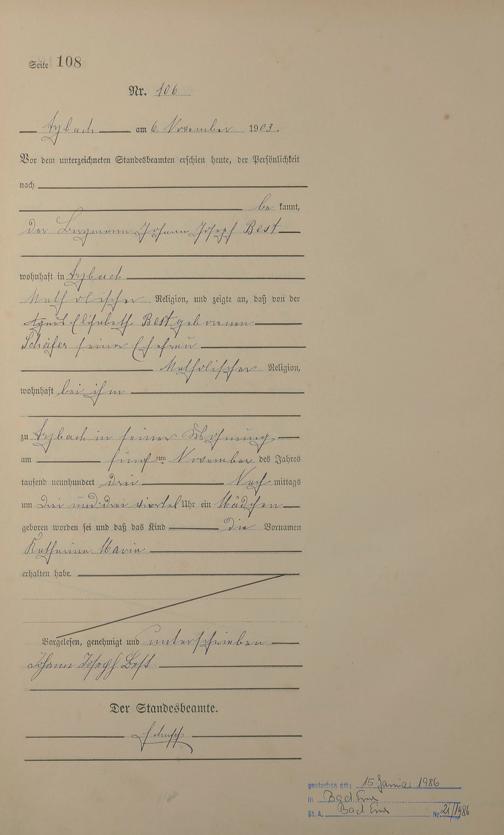 Seite 108
Nr. 106
Arzbach am 6. November 1903.
Vor dem unterzeichneten Standesbeamten erschien heute, der Persönlichkeit
nach
be kannt,
der Bergmann Johann Josef Best
wohnhaft in Arzbach
katholischer Religion, und zeigte an, daß von der
Agnes Elisabeth Best geborenen
Schäfer seiner Ehefrau
katholischer Religion,
wohnhaft bei ihm
zu Arzbach in seiner Wohnung
am fünften November des Jahres
tausend neunhundert drei Nach mittags
um drei und drei viertel Uhr ein Mädchen
geboren worden sei und daß das Kind die Vornamen
Katharina Maria
erhalten habe.
Vorgelesen, genehmigt und unterschrieben
Johann Joseph Best
Der Standesbeamte.
gestorben am: 15 Januar 1986
in Bad Ems
St. A. Bad Ems Nr. 21/1986